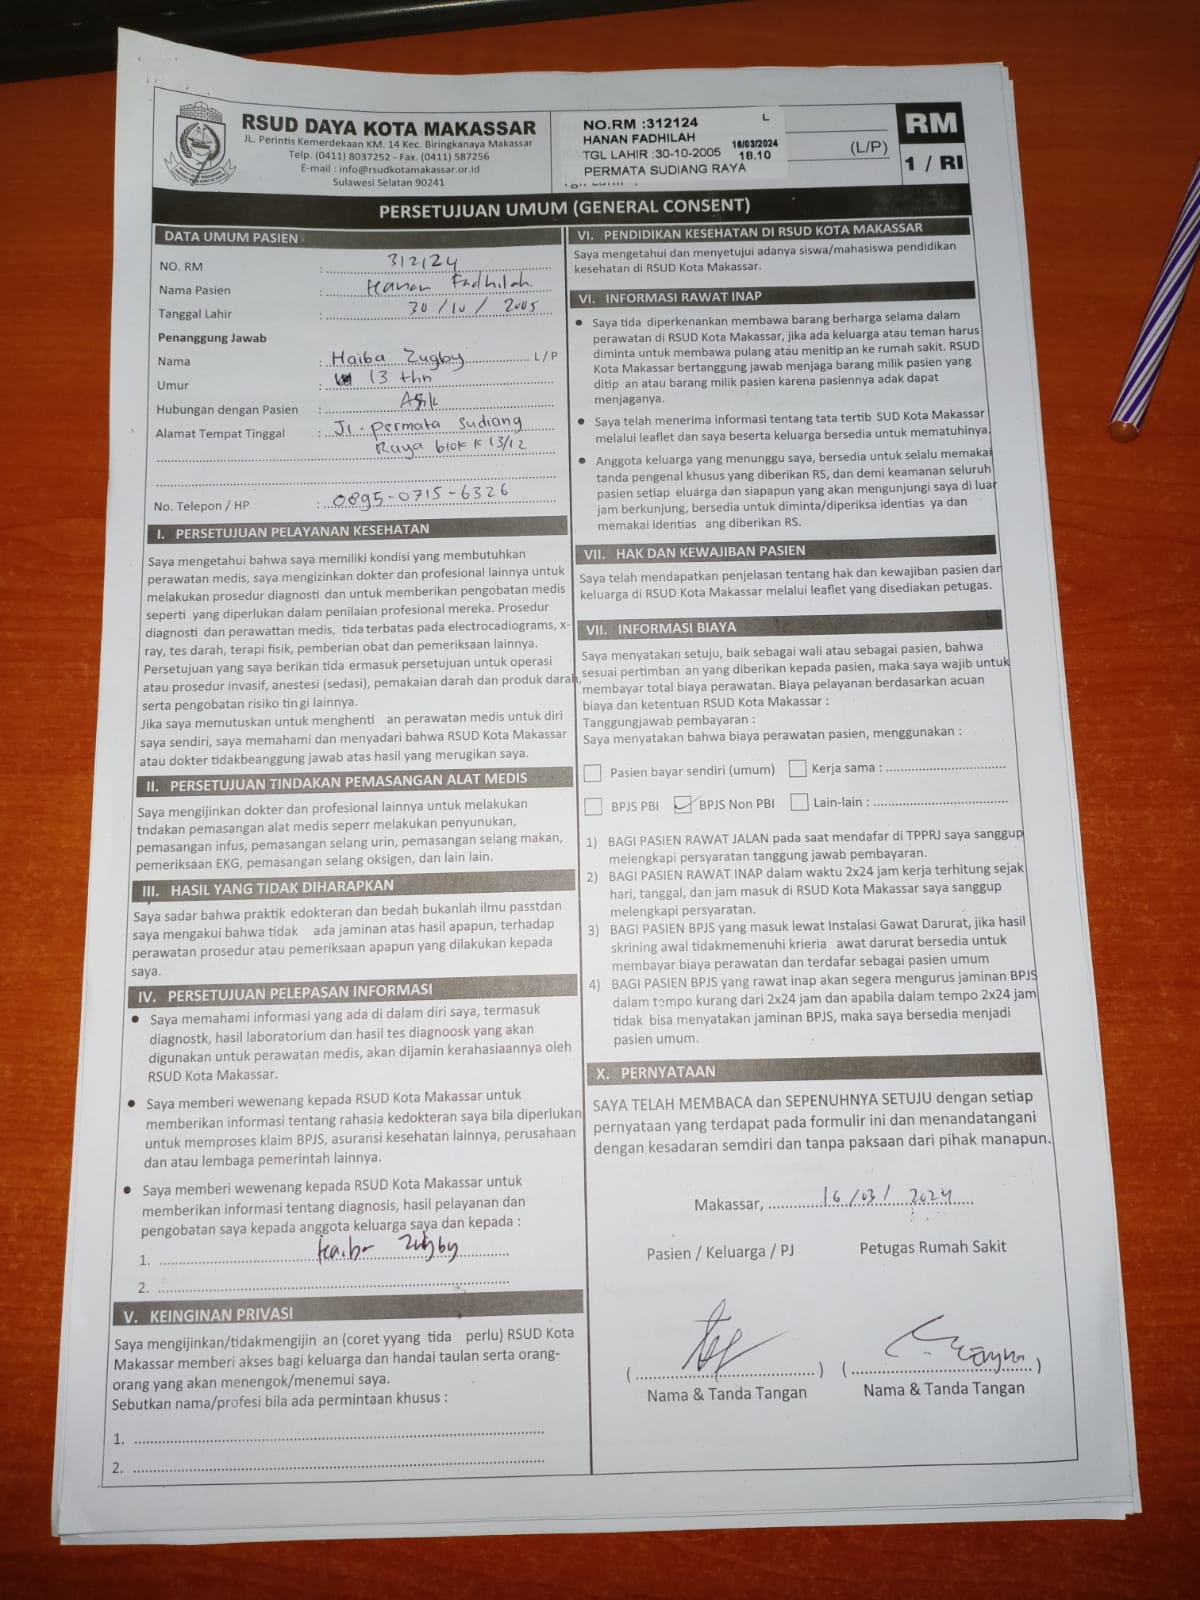 RSUD DAYA KOTA MAKASSAR
JL. Perintis Kemerdekaan KM. 14 Kec. Biringkanaya Makassar
Telp. (0411) 8037252 - Fax. (0411) 587256
E-mail : info@rsudkotamakassar.or.id
Sulawesi Selatan 90241
NO.RM :312124 L
HANAN FADHILAH 16/03/2024
TGL LAHIR :30-10-2005 18.10
PERMATA SUDIANG RAYA
(L/P)
RM
1 / RI
PERSETUJUAN UMUM (GENERAL CONSENT)
DATA UMUM PASIEN
NO. RM : 312124
Nama Pasien : Hanan Fadhilah
Tanggal Lahir : 30 / 10 / 2005
Penanggung Jawab
Nama : Haiba Zugby L/P
Umur : 13 thn
Hubungan dengan Pasien :
Alamat Tempat Tinggal : Jl. Permata Sudiang
Raya blok K 13/12
No. Telepon / HP : 0895-0715-6326
I. PERSETUJUAN PELAYANAN KESEHATAN
Saya mengetahui bahwa saya memiliki kondisi yang membutuhkan
perawatan medis, saya mengizinkan dokter dan profesional lainnya untuk
melakukan prosedur diagnosti dan untuk memberikan pengobatan medis
seperti yang diperlukan dalam penilaian profesional mereka. Prosedur
diagnosti dan perawattan medis, tida terbatas pada electrocadiograms, x-
ray, tes darah, terapi fisik, pemberian obat dan pemeriksaan lainnya.
Persetujuan yang saya berikan tida ermasuk persetujuan untuk operasi
atau prosedur invasif, anestesi (sedasi), pemakaian darah dan produk darah,
serta pengobatan risiko tin gi lainnya.
Jika saya memutuskan untuk menghenti an perawatan medis untuk diri
saya sendiri, saya memahami dan menyadari bahwa RSUD Kota Makassar
atau dokter tidakbeanggung jawab atas hasil yang merugikan saya.
II. PERSETUJUAN TINDAKAN PEMASANGAN ALAT MEDIS
Saya mengijinkan dokter dan profesional lainnya untuk melakukan
tndakan pemasangan alat medis seperr melakukan penyunukan,
pemasangan infus, pemasangan selang urin, pemasangan selang makan,
pemeriksaan EKG, pemasangan selang oksigen, dan lain lain.
III. HASIL YANG TIDAK DIHARAPKAN
Saya sadar bahwa praktik edokteran dan bedah bukanlah ilmu passtdan
saya mengakui bahwa tidak ada jaminan atas hasil apapun, terhadap
perawatan prosedur atau pemeriksaan apapun yang dilakukan kepada
saya.
IV. PERSETUJUAN PELEPASAN INFORMASI
• Saya memahami informasi yang ada di dalam diri saya, termasuk
diagnostk, hasil laboratorium dan hasil tes diagnoosk yang akan
digunakan untuk perawatan medis, akan dijamin kerahasiaannya oleh
RSUD Kota Makassar.
• Saya memberi wewenang kepada RSUD Kota Makassar untuk
memberikan informasi tentang rahasia kedokteran saya bila diperlukan
untuk memproses klaim BPJS, asuransi kesehatan lainnya, perusahaan
dan atau lembaga pemerintah lainnya.
• Saya memberi wewenang kepada RSUD Kota Makassar untuk
memberikan informasi tentang diagnosis, hasil pelayanan dan
pengobatan saya kepada anggota keluarga saya dan kepada :
1. Haiba Zugby
2.
V. KEINGINAN PRIVASI
Saya mengijinkan/tidakmengijin an (coret yyang tida perlu) RSUD Kota
Makassar memberi akses bagi keluarga dan handai taulan serta orang-
orang yang akan menengok/menemui saya.
Sebutkan nama/profesi bila ada permintaan khusus :
1.
2.
VI. PENDIDIKAN KESEHATAN DI RSUD KOTA MAKASSAR
Saya mengetahui dan menyetujui adanya siswa/mahasiswa pendidikan
kesehatan di RSUD Kota Makassar.
VI. INFORMASI RAWAT INAP
• Saya tida diperkenankan membawa barang berharga selama dalam
perawatan di RSUD Kota Makassar, jika ada keluarga atau teman harus
diminta untuk membawa pulang atau menitip an ke rumah sakit. RSUD
Kota Makassar bertanggung jawab menjaga barang milik pasien yang
ditip an atau barang milik pasien karena pasiennya adak dapat
menjaganya.
• Saya telah menerima informasi tentang tata tertib SUD Kota Makassar
melalui leaflet dan saya beserta keluarga bersedia untuk mematuhinya.
• Anggota keluarga yang menunggu saya, bersedia untuk selalu memakai
tanda pengenal khusus yang diberikan RS, dan demi keamanan seluruh
pasien setiap eluárga dan siapapun yang akan mengunjungi saya di luar
jam berkunjung, bersedia untuk diminta/diperiksa identias ya dan
memakai identias ang diberikan RS.
VII. HAK DAN KEWAJIBAN PASIEN
Saya telah mendapatkan penjelasan tentang hak dan kewajiban pasien dan
keluarga di RSUD Kota Makassar melalui leaflet yang disediakan petugas.
VII. INFORMASI BIAYA
Saya menyatakan setuju, baik sebagai wali atau sebagai pasien, bahwa
sesuai pertimban an yang diberikan kepada pasien, maka saya wajib untuk
membayar total biaya perawatan. Biaya pelayanan berdasarkan acuan
biaya dan ketentuan RSUD Kota Makassar :
Tanggungjawab pembayaran :
Saya menyatakan bahwa biaya perawatan pasien, menggunakan :
Pasien bayar sendiri (umum) Kerja sama :
BPJS PBI BPJS Non PBI Lain-lain :
1) BAGI PASIEN RAWAT JALAN pada saat mendafar di TPPRJ saya sanggup
melengkapi persyaratan tanggung jawab pembayaran.
2) BAGI PASIEN RAWAT INAP dalam waktu 2x24 jam kerja terhitung sejak
hari, tanggal, dan jam masuk di RSUD Kota Makassar saya sanggup
melengkapi persyaratan.
3) BAGI PASIEN BPJS yang masuk lewat Instalasi Gawat Darurat, jika hasil
skrining awal tidakmemenuhi krieria awat darurat bersedia untuk
membayar biaya perawatan dan terdafar sebagai pasien umum
4) BAGI PASIEN BPJS yang rawat inap akan segera mengurus jaminan BPJS
dalam tempo kurang dari 2x24 jam dan apabila dalam tempo 2x24 jam
tidak bisa menyatakan jaminan BPJS, maka saya bersedia menjadi
pasien umum.
X. PERNYATAAN
SAYA TELAH MEMBACA dan SEPENUHNYA SETUJU dengan setiap
pernyataan yang terdapat pada formulir ini dan menandatangani
dengan kesadaran semdiri dan tanpa paksaan dari pihak manapun.
Makassar, 16 / 03 / 2024
Pasien / Keluarga / PJ Petugas Rumah Sakit
( ) ( )
Nama & Tanda Tangan Nama & Tanda Tangan